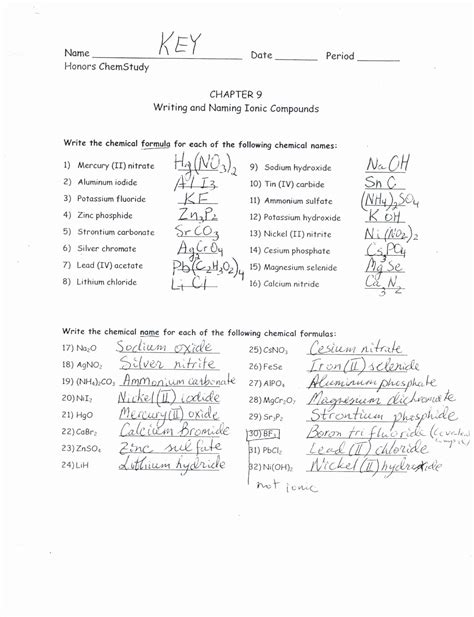 KEY
Name Date Period
Honors ChemStudy
CHAPTER 9
Writing and Naming Ionic Compounds
Write the chemical formula for each of the following chemical names:
1) Mercury (II) nitrate Hg(NO₃)₂ 9) Sodium hydroxide NaOH
2) Aluminum iodide AlI₃ 10) Tin (IV) carbide SnC
3) Potassium fluoride KF 11) Ammonium sulfate (NH₄)₂SO₄
4) Zinc phosphide Zn₃P₂ 12) Potassium hydroxide KOH
5) Strontium carbonate SrCO₃ 13) Nickel (II) nitrite Ni(NO₂)₂
6) Silver chromate Ag₂CrO₄ 14) Cesium phosphate Cs₃PO₄
7) Lead (IV) acetate Pb(C₂H₃O₂)₄ 15) Magnesium selenide MgSe
8) Lithium chloride LiCl 16) Calcium nitride Ca₃N₂
Write the chemical name for each of the following chemical formulas:
17) Na₂O Sodium oxide 25) CsNO₃ Cesium nitrate
18) AgNO₂ Silver nitrite 26) FeSe Iron (II) selenide
19) (NH₄)₂CO₃ Ammonium carbonate 27) AlPO₄ Aluminum phosphate
20) NiI₂ Nickel (II) iodide 28) MgCr₂O₇ Magnesium dichromate
21) HgO Mercury (II) oxide 29) Sr₃P₂ Strontium phosphide
22) CaBr₂ Calcium Bromide 30) BF₃ Boron tri fluoride
23) ZnSO₄ Zinc sulfate 31) PbCl₂ Lead (II) chloride
24) LiH Lithium hydride 32) Ni(OH)₂ Nickel (II) hydroxide
not ionic